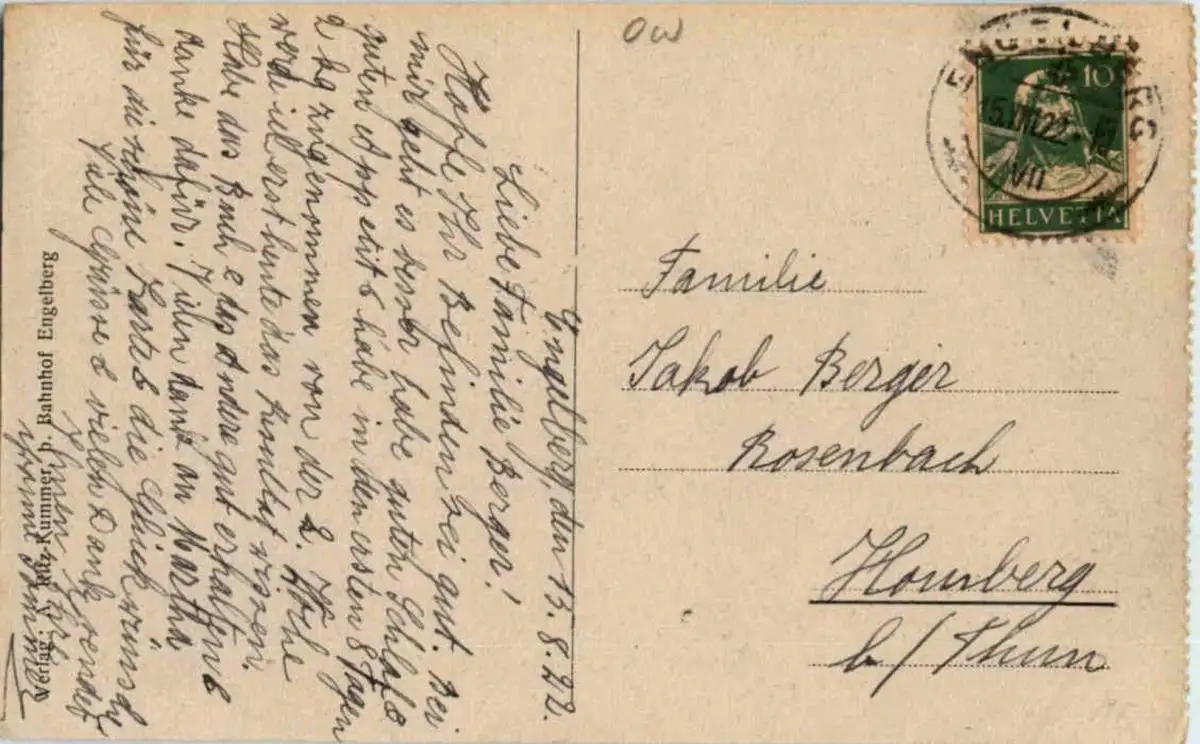 Engelberg, den 13. 8. 22.
Liebe Familie Berger!
Hoffe Ihr Befinden sei gut. Bei
mir geht es sonst habe guten Schlaf &
guten Appetit & habe in den ersten 8 Tagen
2 kg zugenommen von der 2. Woche
werde ich erst heute das Resultat wissen.
Habe das Buch & das Andere gut erhalten &
danke dafür. Vielen Dank an Martha
für die schöne Karte & die Glückwünsche
Viele Grüsse & vielen Dank sendet
Verlag: A. Kummer, p. Bahnhof Engelberg
OW
ENGELBERG
15.VIII.22
VII
10
HELVETIA
Familie
Jakob Berger
Rosenbach
Homberg
b/ Thun